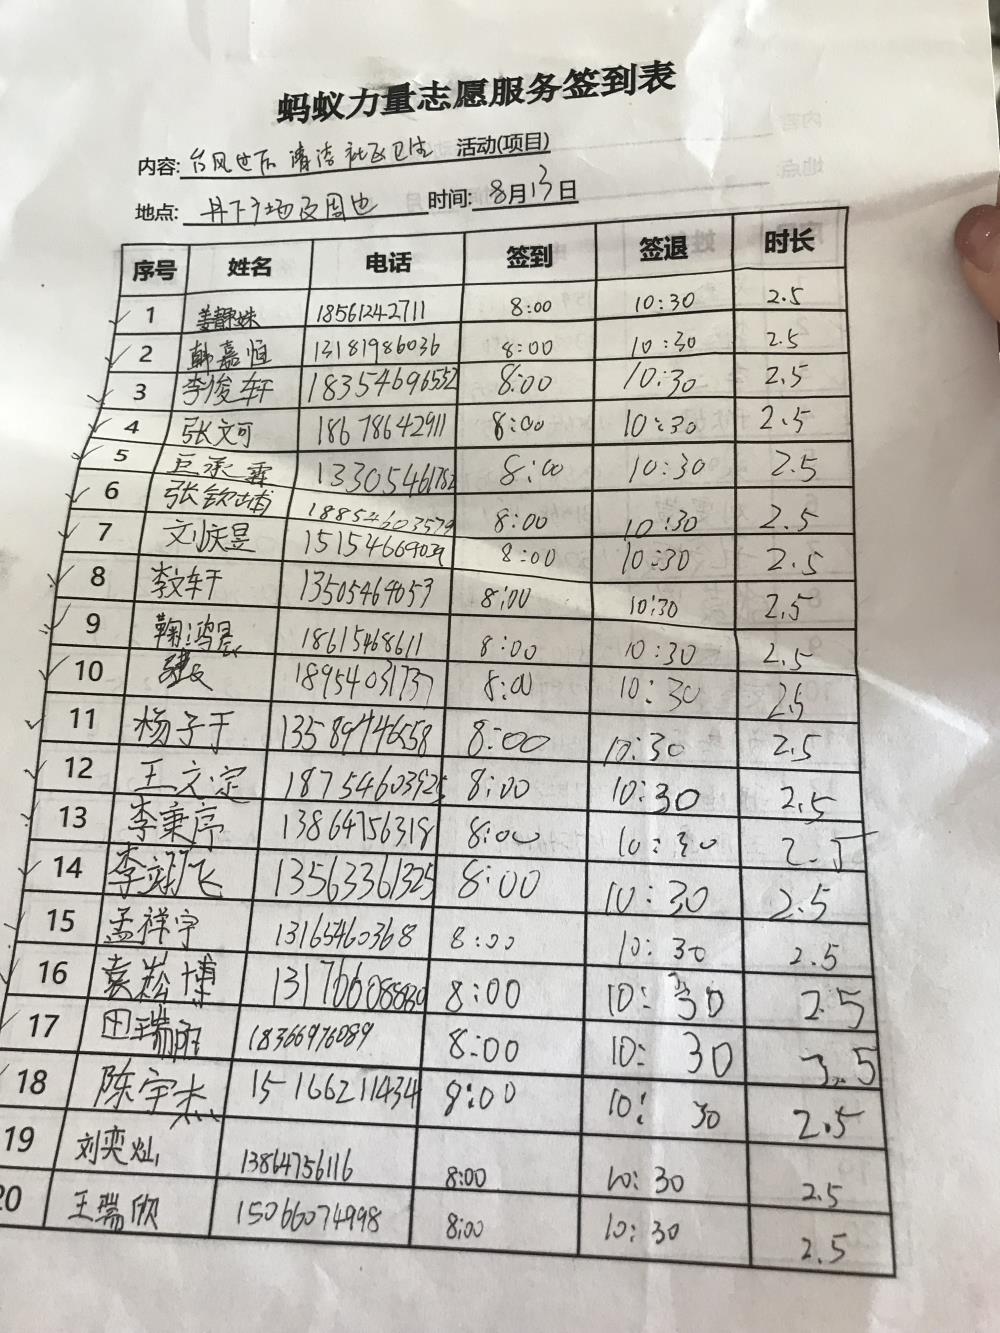 蚂蚁力量志愿服务签到表
内容: 台风过后 清洁社区卫生 活动(项目)
地点: 广场及周边 时间: 8月13日
序号 姓名 电话 签到 签退 时长
1 姜静姝 18561242711 8:00 10:30 2.5
2 韩嘉恒 13181986036 8:00 10:30 2.5
3 李俊轩 18354696552 8:00 10:30 2.5
4 张文可 18678642911 8:00 10:30 2.5
5 巨承霖 13305461782 8:00 10:30 2.5
6 张钦 18854603579 8:00 10:30 2.5
7 刘庆昱 15154669039 8:00 10:30 2.5
8 李文轩 13505464053 8:00 10:30 2.5
9 鞠鸿晨 18615468611 8:00 10:30 2.5
10 18954031737 8:00 10:30 2.5
11 杨子于 13589746558 8:00 10:30 2.5
12 王文定 18754603925 8:00 10:30 2.5
13 李秉序 13864756318 8:00 10:30 2.5
14 李翊飞 13563361325 8:00 10:30 2.5
15 孟祥宇 13165460368 8:00 10:30 2.5
16 袁崧博 8:00 10:30 2.5
17 田瑞 18366976089 8:00 10:30 2.5
18 陈宇杰 15166211434 8:00 10:30 2.5
19 刘奕灿 13864756116 8:00 10:30 2.5
20 王瑞欣 15066074998 8:00 10:30 2.5